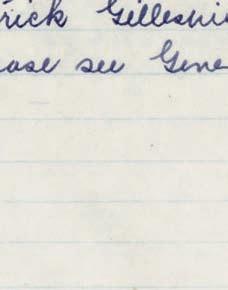 rick Gillespie
ease see Gene